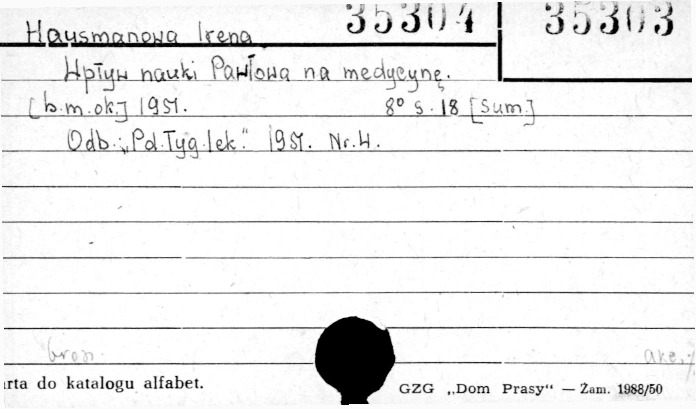 35304 35303
Hausmanowa Irena
Wpływ nauki Pawłowa na medycynę.
[b.m.ok.] 1951. 8° s. 18 [Sum.]
Odb. „Pol. Tyg. lek." 1951. Nr. 4.
brosz.
akc.
rta do katalogu alfabet. GZG „Dom Prasy“ — Żam. 1988/50